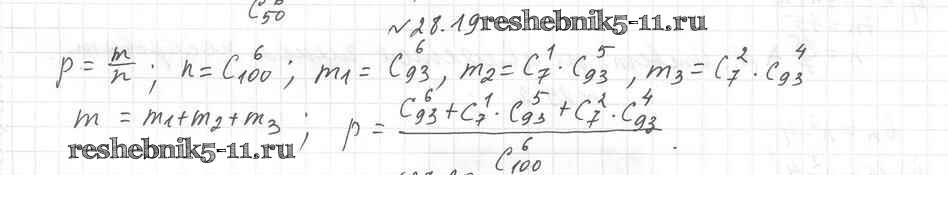 C 50
№28.19 reshebnik5-11.ru
p = m/n ; n = C₁₀₀⁶ ; m₁ = C₉₃⁶ , m₂ = C₇¹ · C₉₃⁵ , m₃ = C₇² · C₉₃⁴
m = m₁ + m₂ + m₃ ; p = (C₉₃⁶ + C₇¹ · C₉₃⁵ + C₇² · C₉₃⁴) / C₁₀₀⁶ .
reshebnik5-11.ru